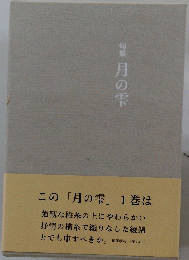 句集
月の雫
この「月の雫」1巻は
の上にやわらかい
抒情の横糸で織りなした綾錦
とでも申すべきか。